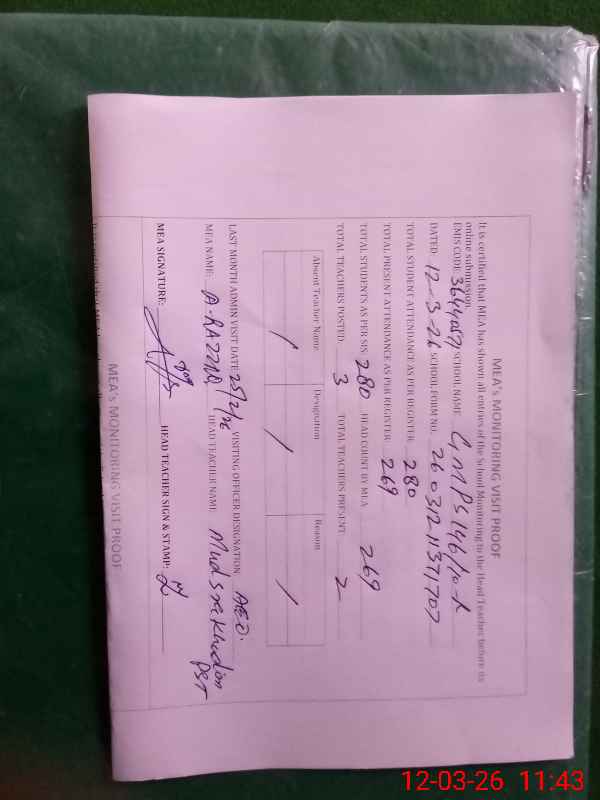 MEA's MONITORING VISIT PROOF
It is certified that MEA has shown all entries of the School Monitoring to the Head Teacher before its
online submission.
EMIS CODE: SCHOOL NAME: GMPS 146/10-R
DATED: 12-3-26 SCHOOL FORM NO. 260312 11371707
TOTAL STUDENT ATTENDANCE AS PER REGISTER: 280
TOTAL PRESENT ATTENDANCE AS PER REGISTER: 269
TOTAL STUDENTS AS PER SIS: 280 HEAD COUNT BY MEA 269
TOTAL TEACHERS POSTED: 3 TOTAL TEACHERS PRESENT: 2
Absent Teacher Name Designation Reason
/ / /
LAST MONTH ADMIN VISIT DATE: VISITING OFFICER DESIGNATION: AEO.
MEA NAME: A-RAZZAQ HEAD TEACHER NAME:
PST
MEA SIGNATURE: HEAD TEACHER SIGN & STAMP:
MEA's MONITORING VISIT PROOF
12-03-26 11:43